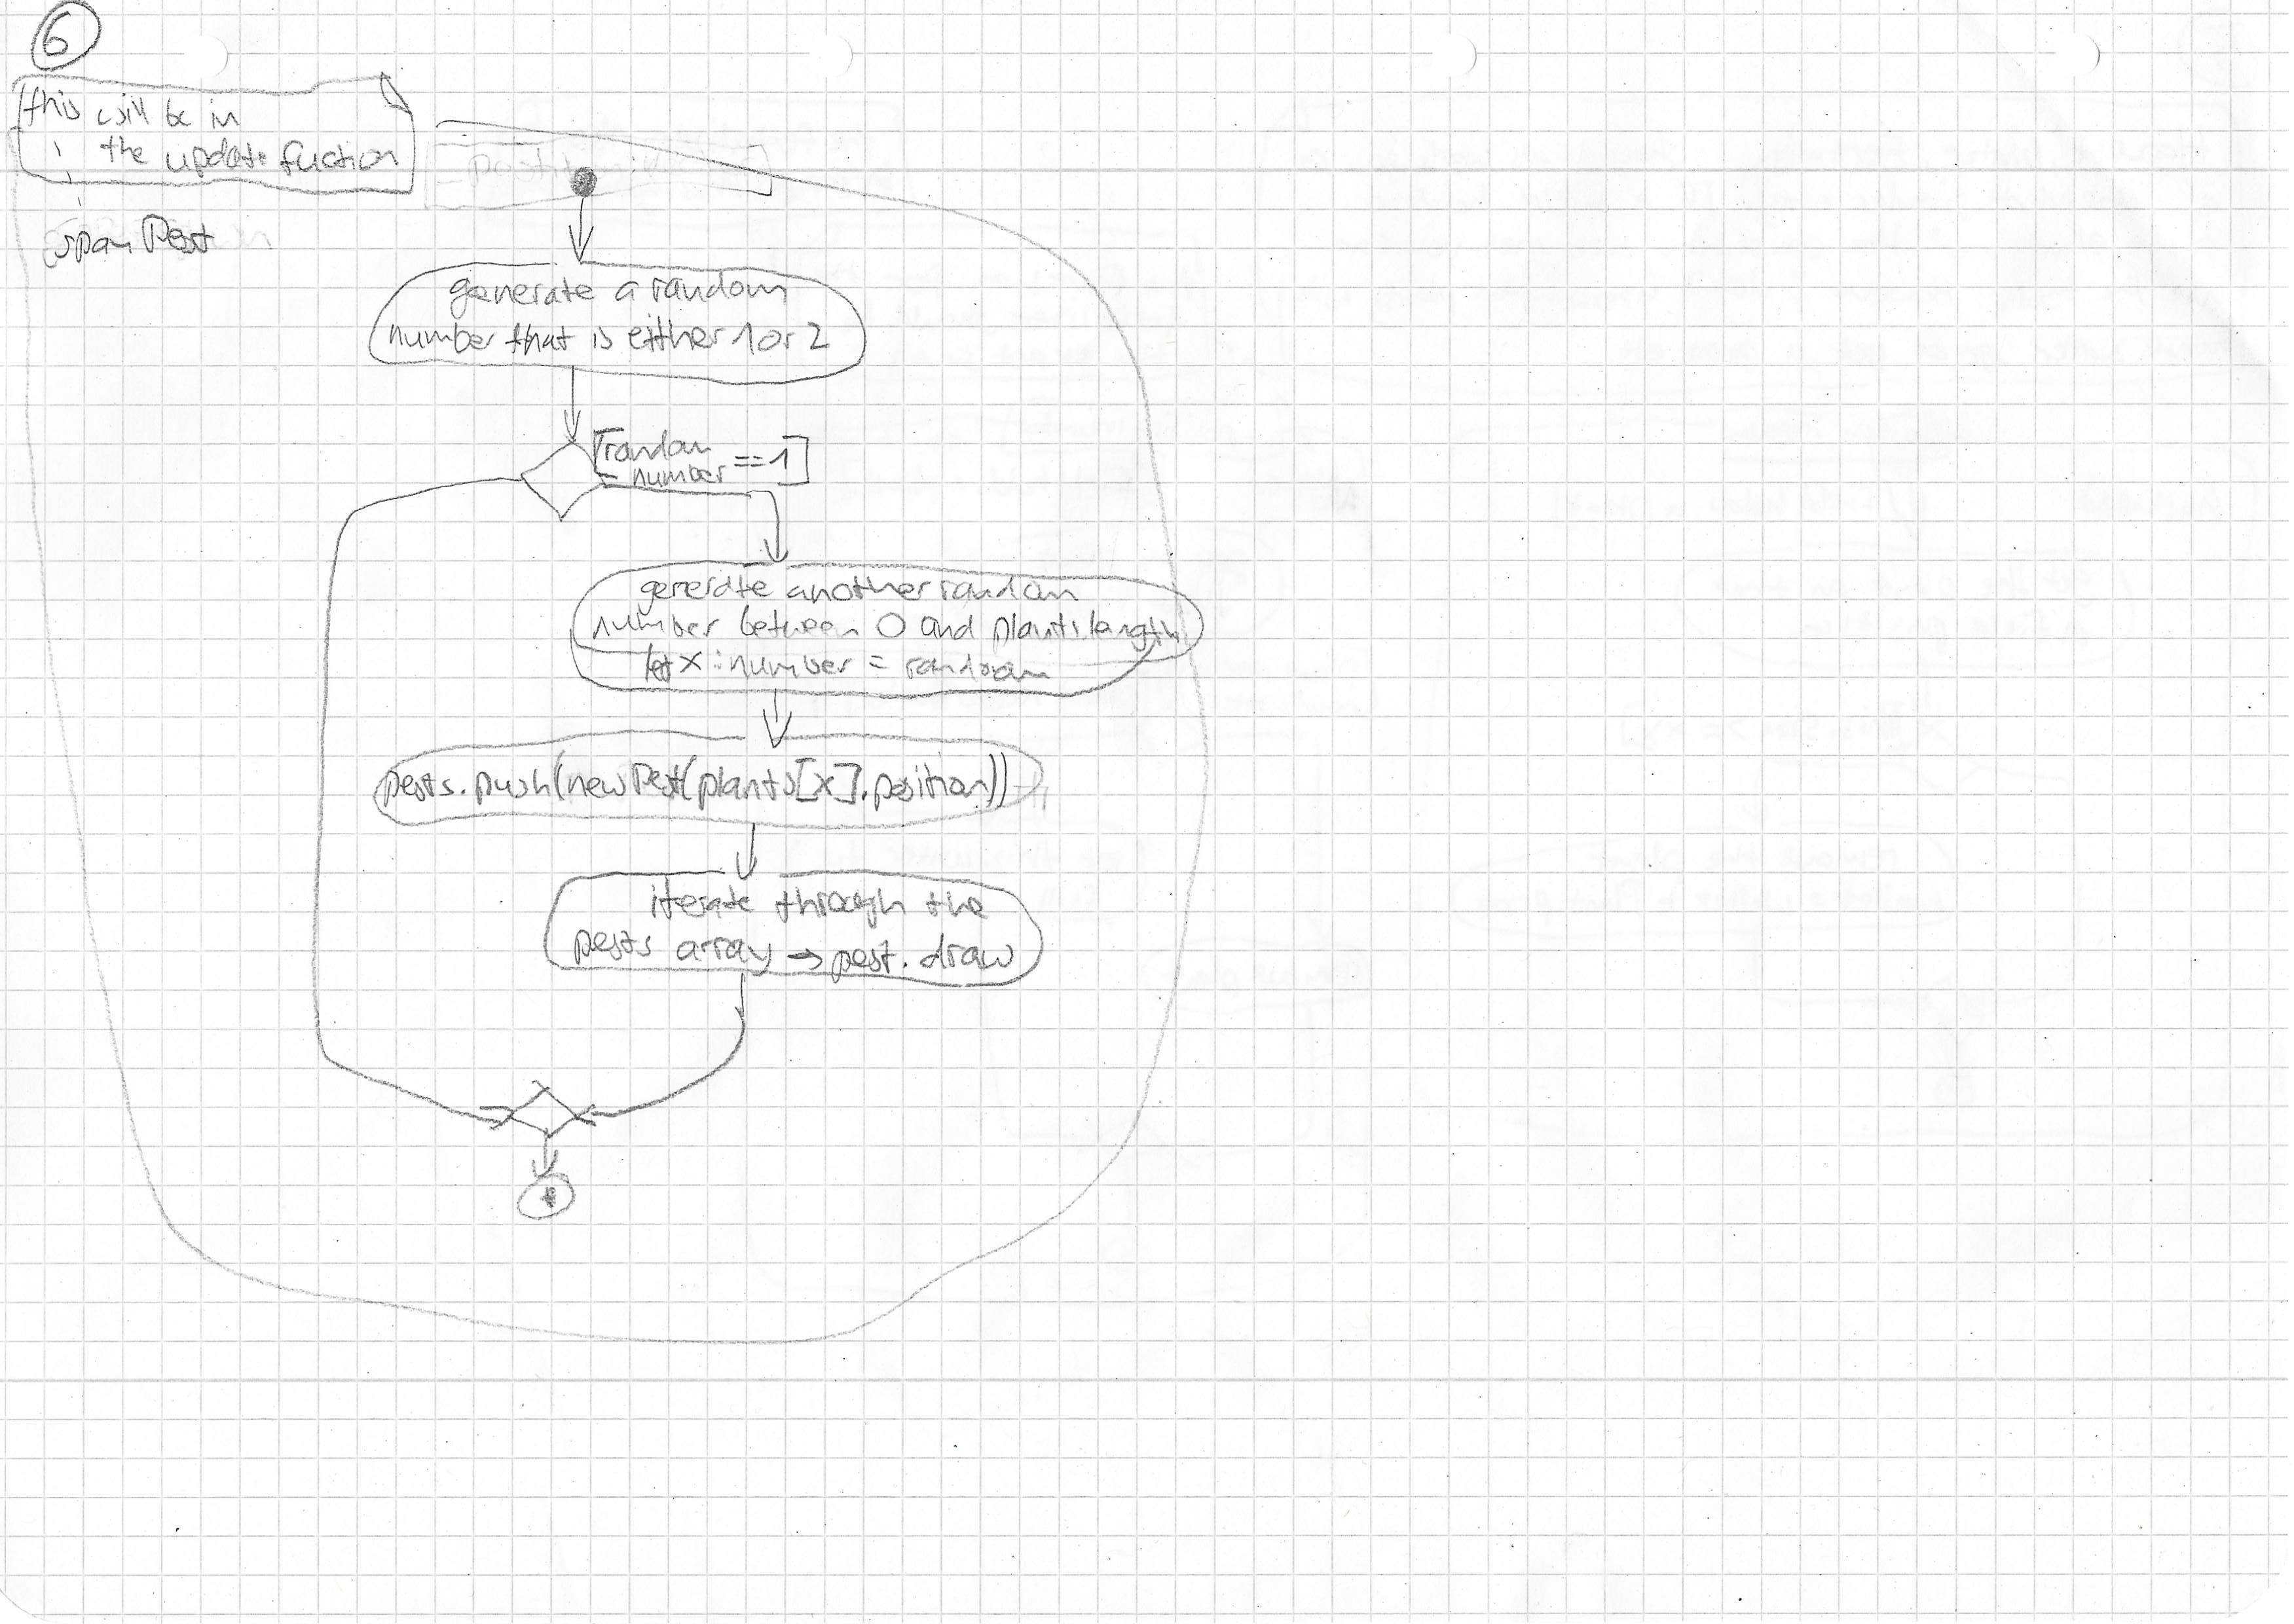 6
this will be in
the update fuction
spanPest
generate a random
number that is either 1 or 2
[random
number == 1]
generate another random
number between 0 and plants.length
let x : number = random
pests.push(new Pest(plants[x].position))
iterate through the
pests array → pest. draw